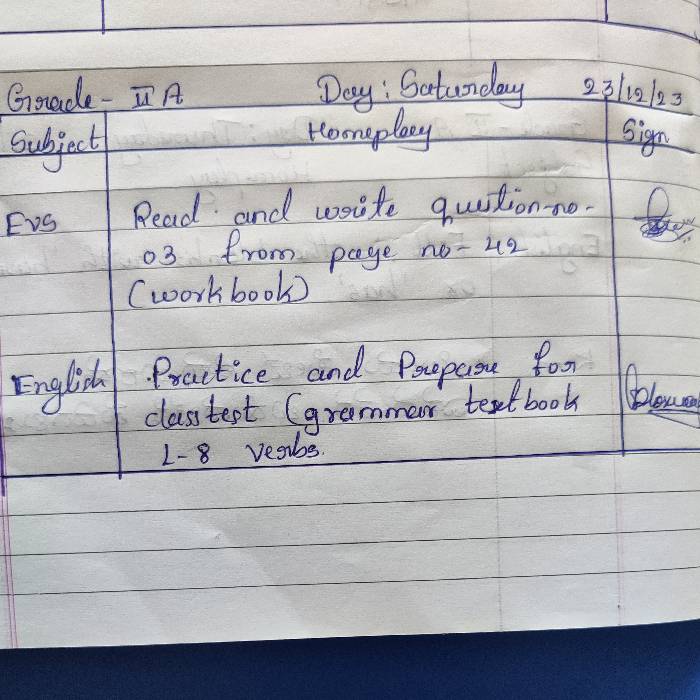 Grade - II A Day : Saturday 23/12/23
Subject Homeplay Sign
Evs Read and write question-no-
03 from page no- 42
(workbook)
English Practice and Prepare for
class test (grammar textbook
L-8 verbs.